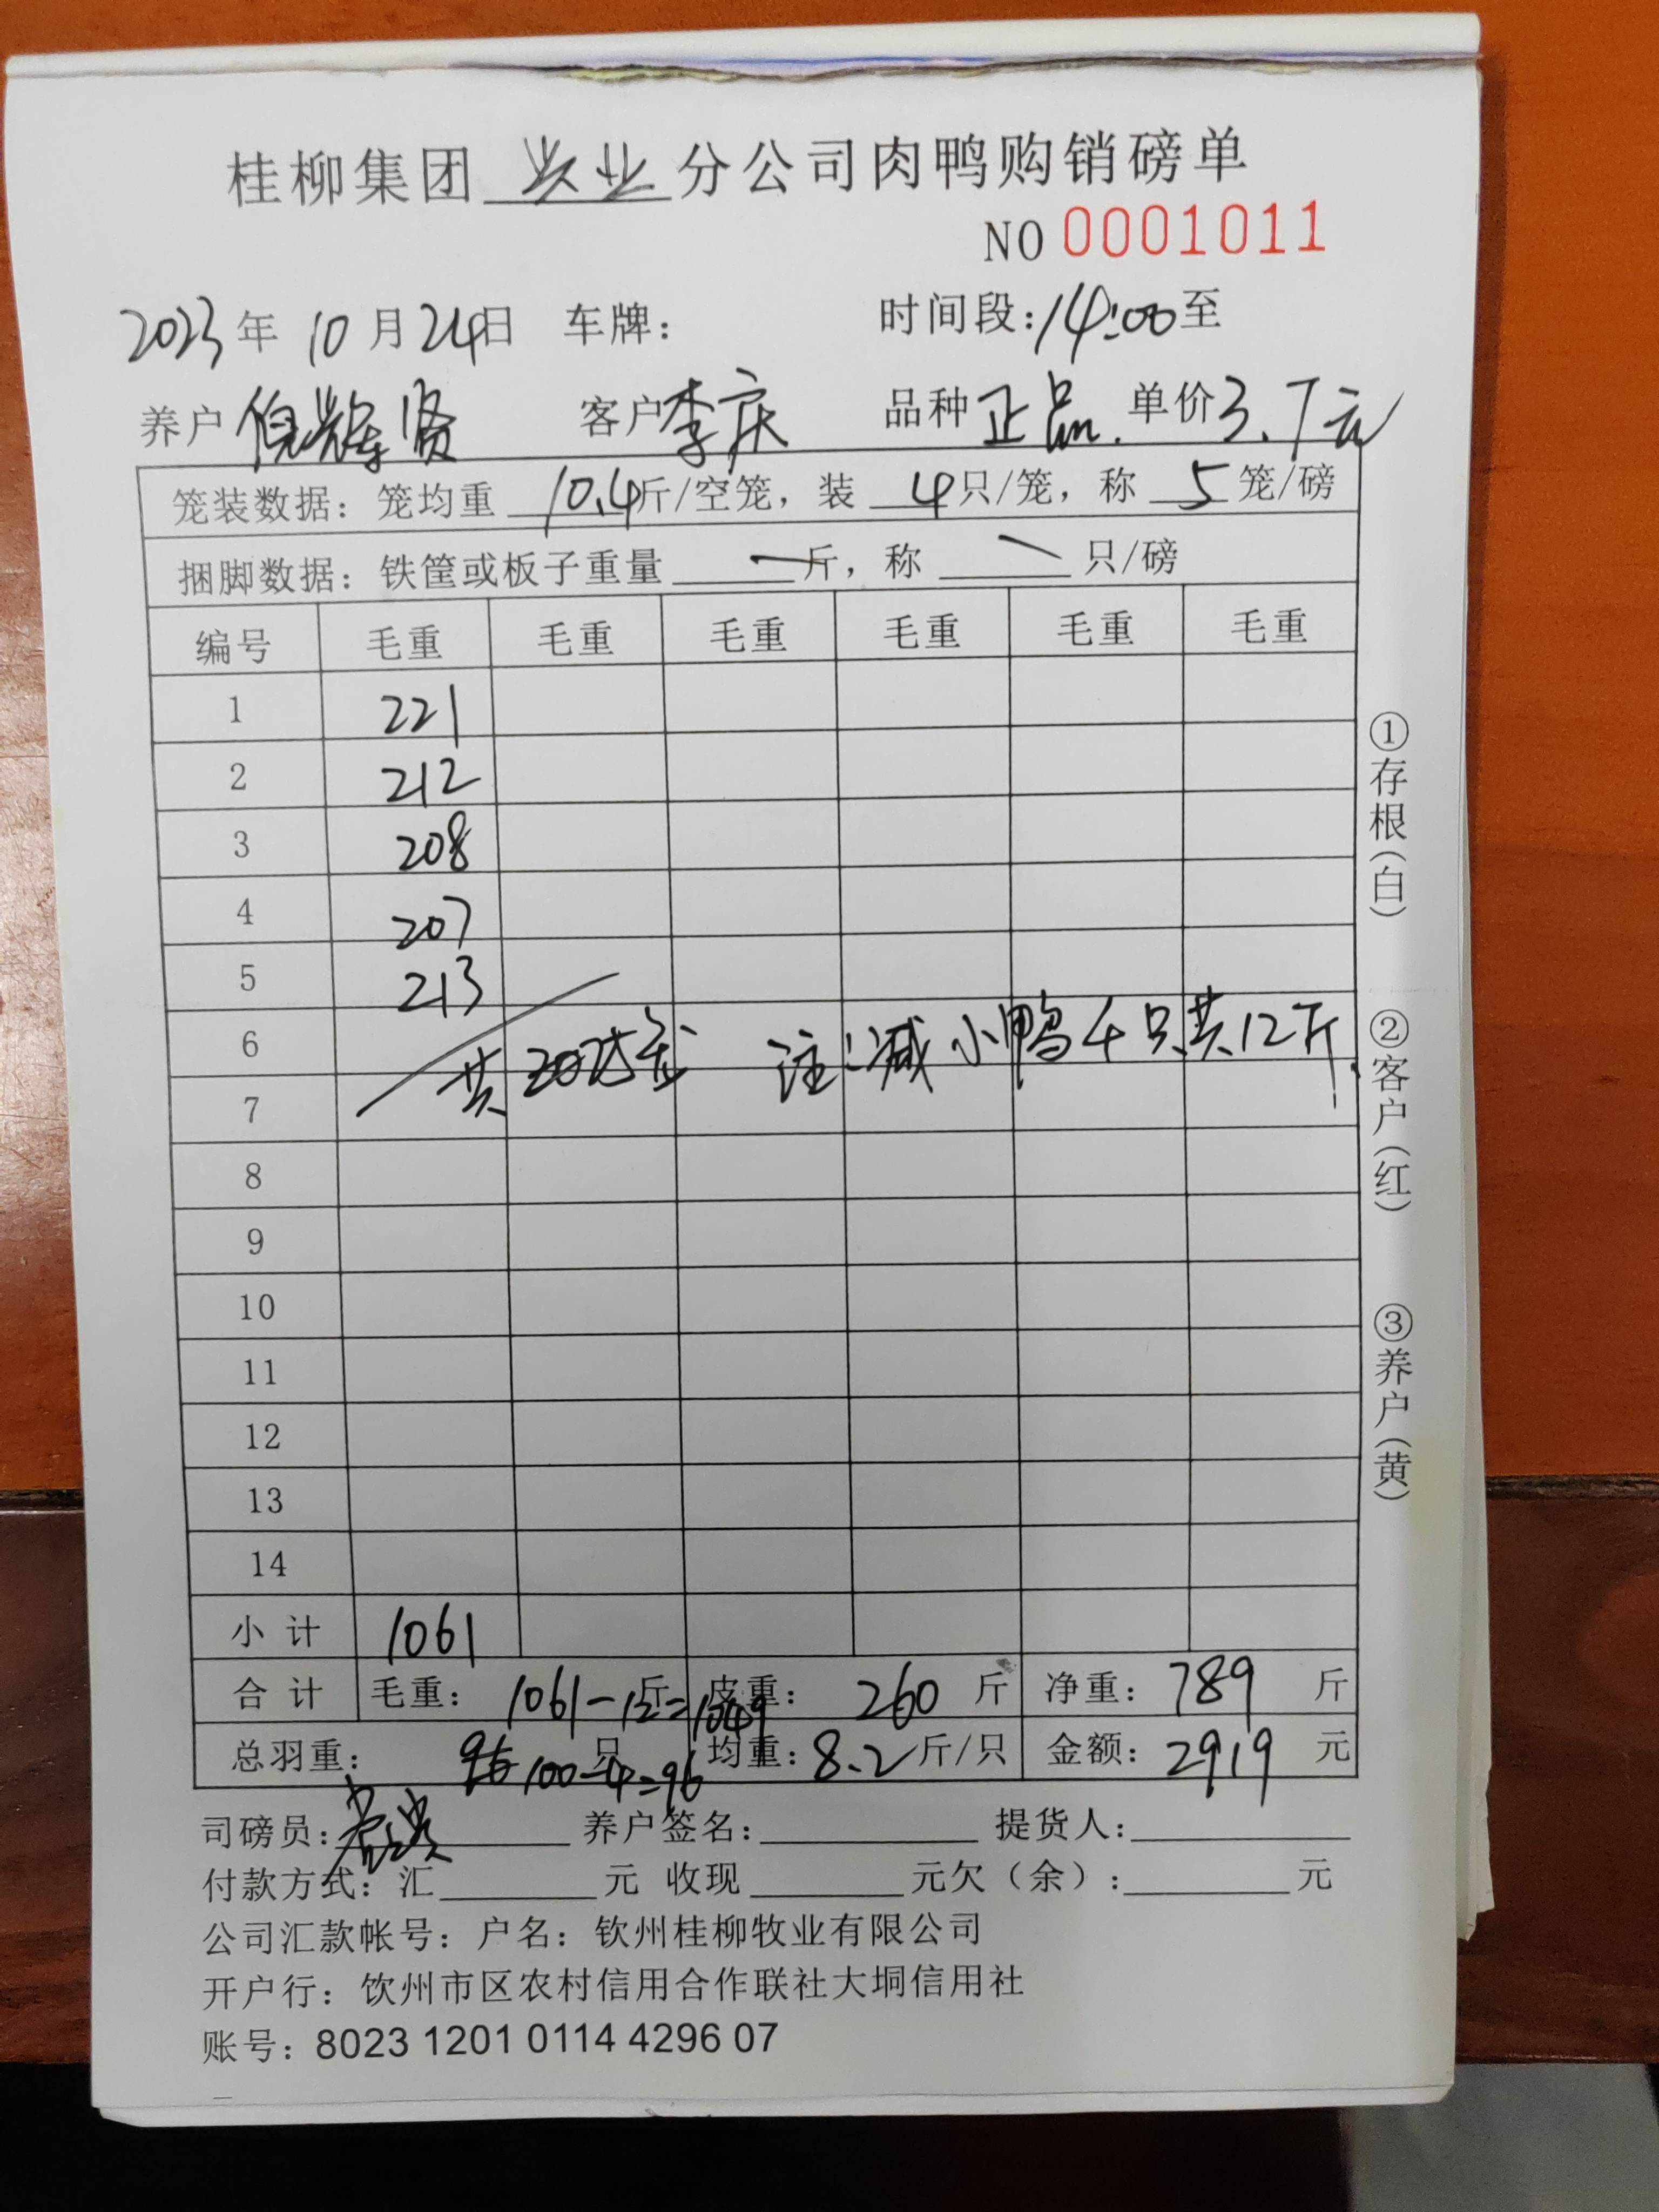 桂柳集团 兴业 分公司肉鸭购销磅单
NO 0001011
2023年 10月24日 车牌： 时间段：14:00至
养户 倪辉贤 客户 李庆 品种 正品. 单价3.7元
笼装数据：笼均重 10.4斤/空笼，装 4只/笼，称 5 笼/磅
捆脚数据：铁筐或板子重量 一斤，称 只/磅
编号 毛重 毛重 毛重 毛重 毛重 毛重
1 221
2 212
3 208
4 207
5 213
6
共 注：减小鸭4只共12斤.
7
8
9
10
11
12
13
14
小 计 1061
合 计 毛重： 1061-12=1049 斤 皮重： 260 斤 净重： 789 斤
总羽重： 96 100-4=96 只 均重：8.2斤/只 金额：2919 元
司磅员： 养户签名： 提货人：
付款方式：汇 元 收现 元欠（余）： 元
公司汇款帐号：户名：钦州桂柳牧业有限公司
开户行：饮州市区农村信用合作联社大垌信用社
账号：8023 1201 0114 4296 07
①存根(白)
②客户(红)
③养户(黄)